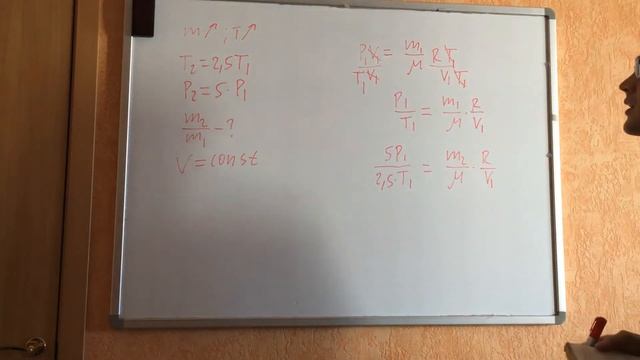 m↗ ; T↗
T₂ = 2,5T₁
P₂ = 5 · P₁
m₂/m₁ - ?
V = const
P₁V₁/T₁V₁ = m₁/μ RT₁/V₁T₁
P₁/T₁ = m₁/μ · R/V₁
5P₁/2,5·T₁ = m₂/μ · R/V₁